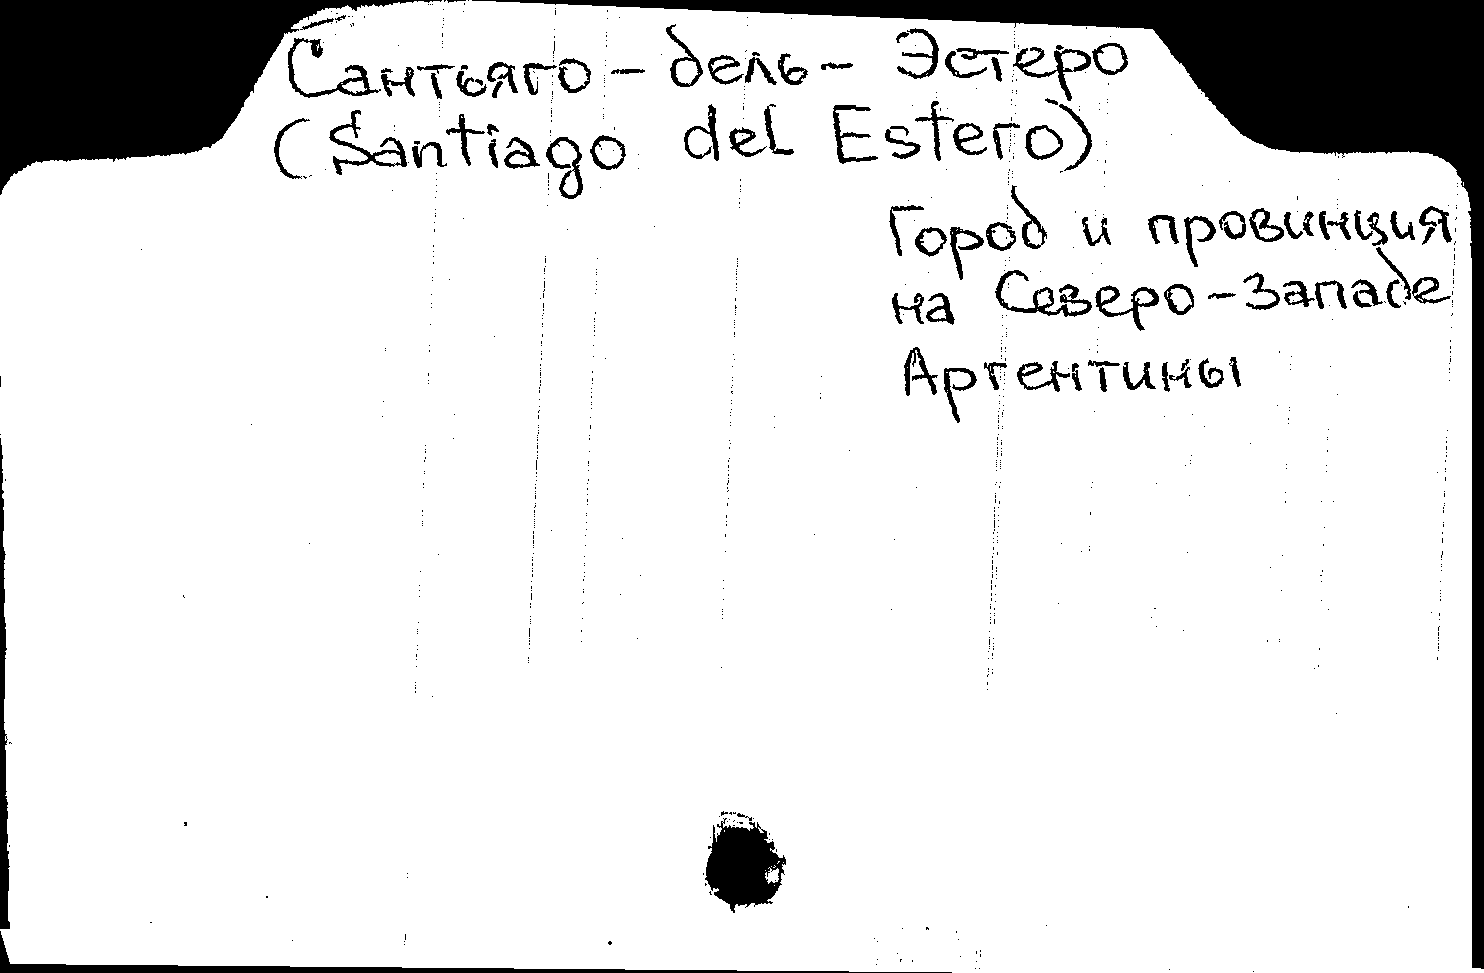 Сантьяго-дель-Эстеро
(Santiago del Estero)
Город и провинция
на Северо-Западе
Аргентины